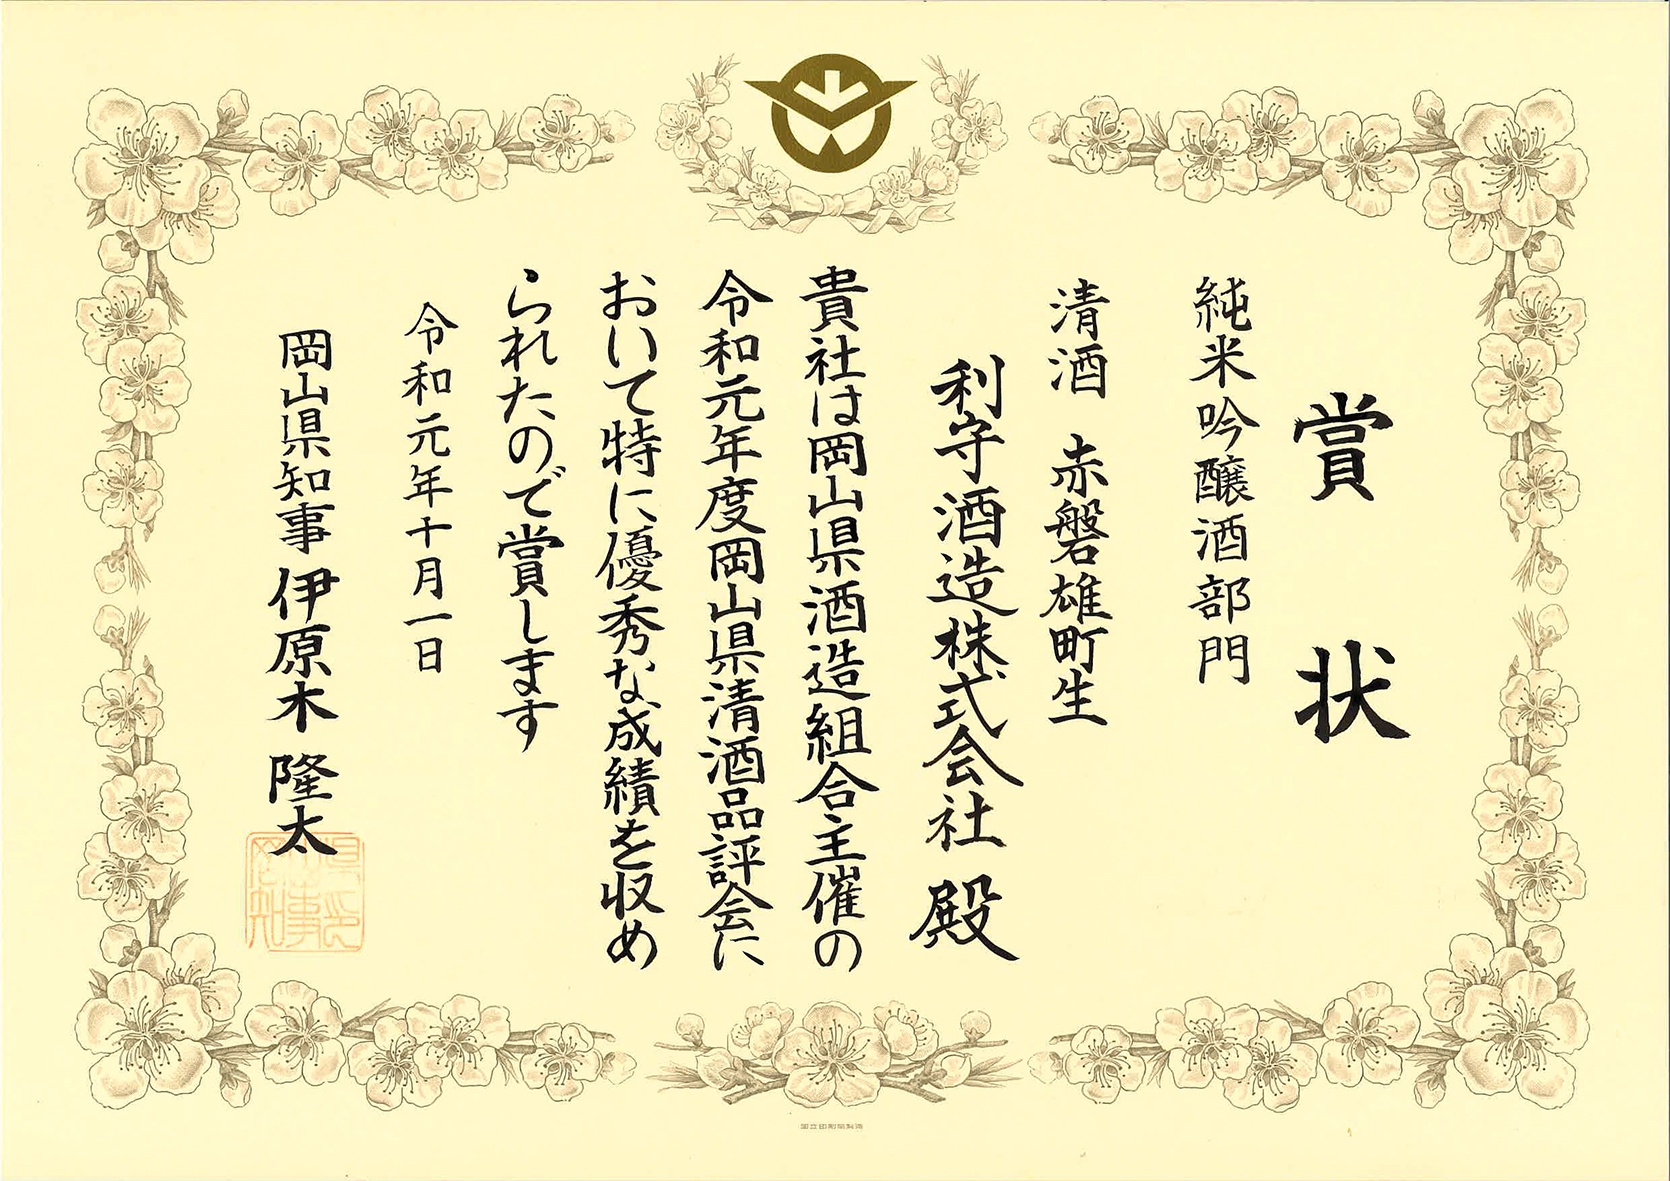 賞状
純米吟醸酒部門
清酒 赤磐雄町生
利守酒造株式会社 殿
貴社は岡山県酒造組合主催の
令和元年度岡山県清酒品評会に
おいて特に優秀な成績を収め
られたので賞します
令和元年十月一日
岡山県知事 伊原木 隆太
国立印刷局製造